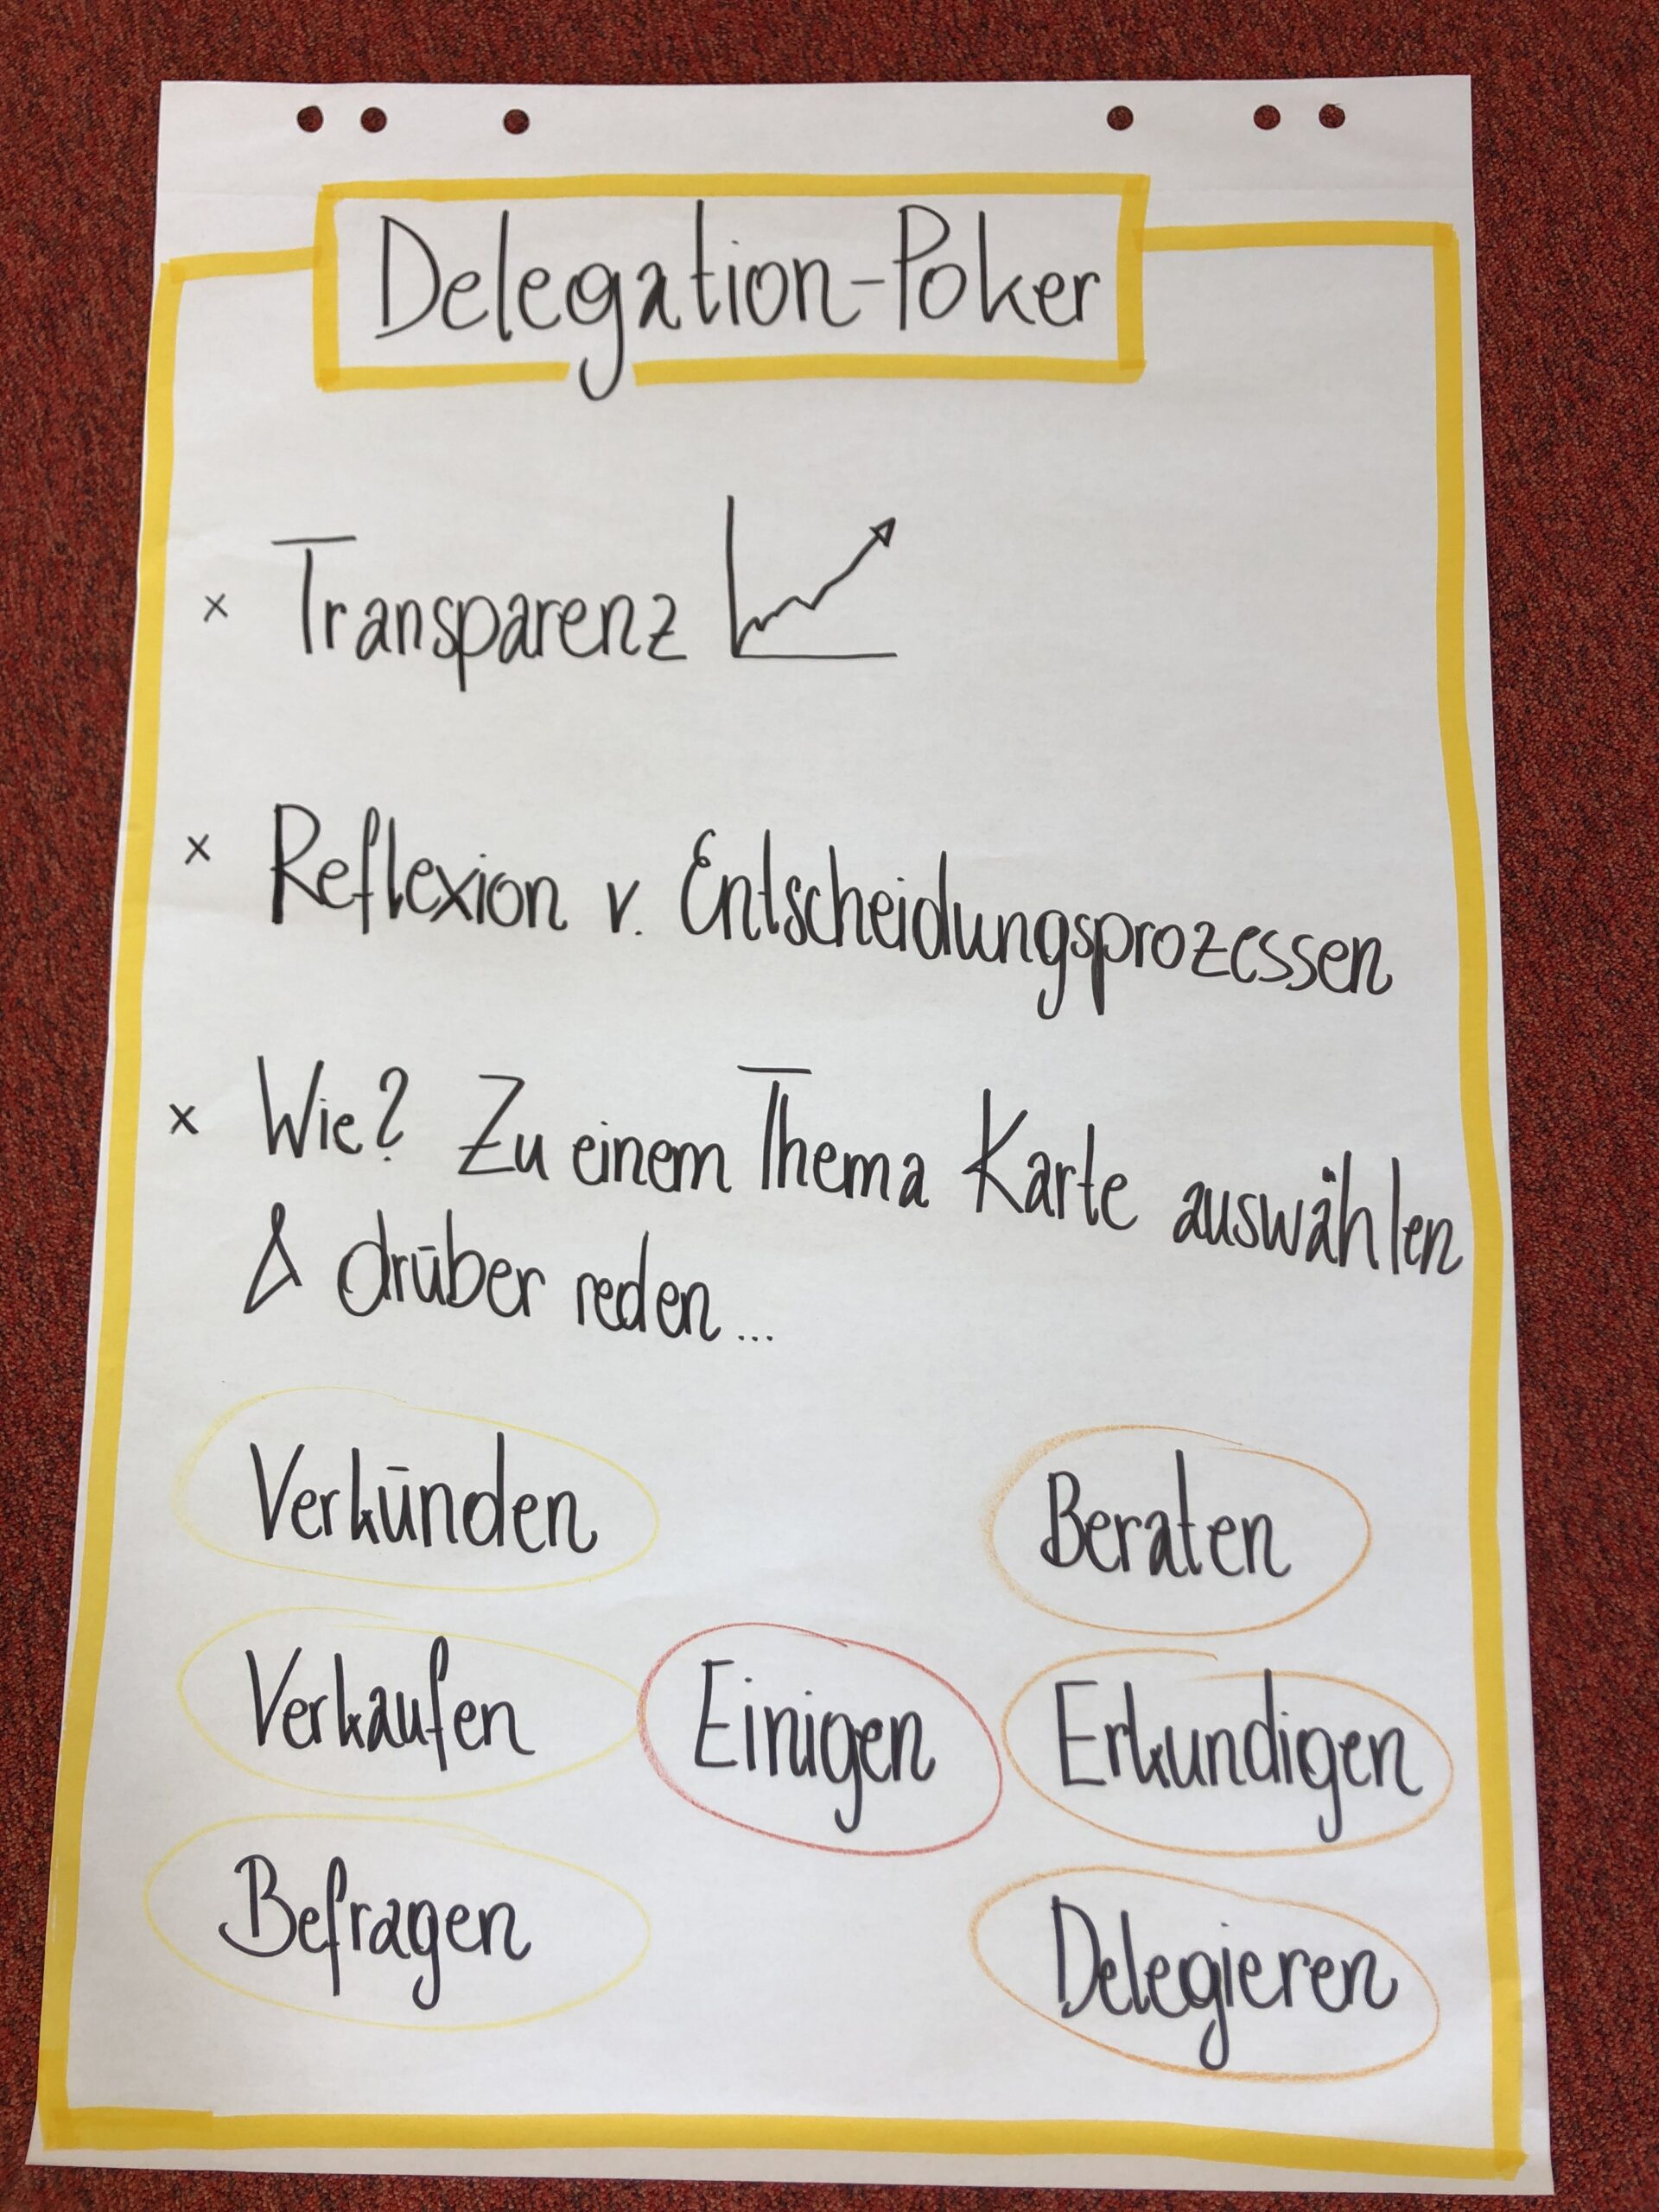 Delegation-Poker
x Transparenz
x Reflexion v. Entscheidungsprozessen
x Wie? Zu einem Thema Karte auswählen
& drüber reden...
Verkünden
Verkaufen
Befragen
Einigen
Beraten
Erkundigen
Delegieren